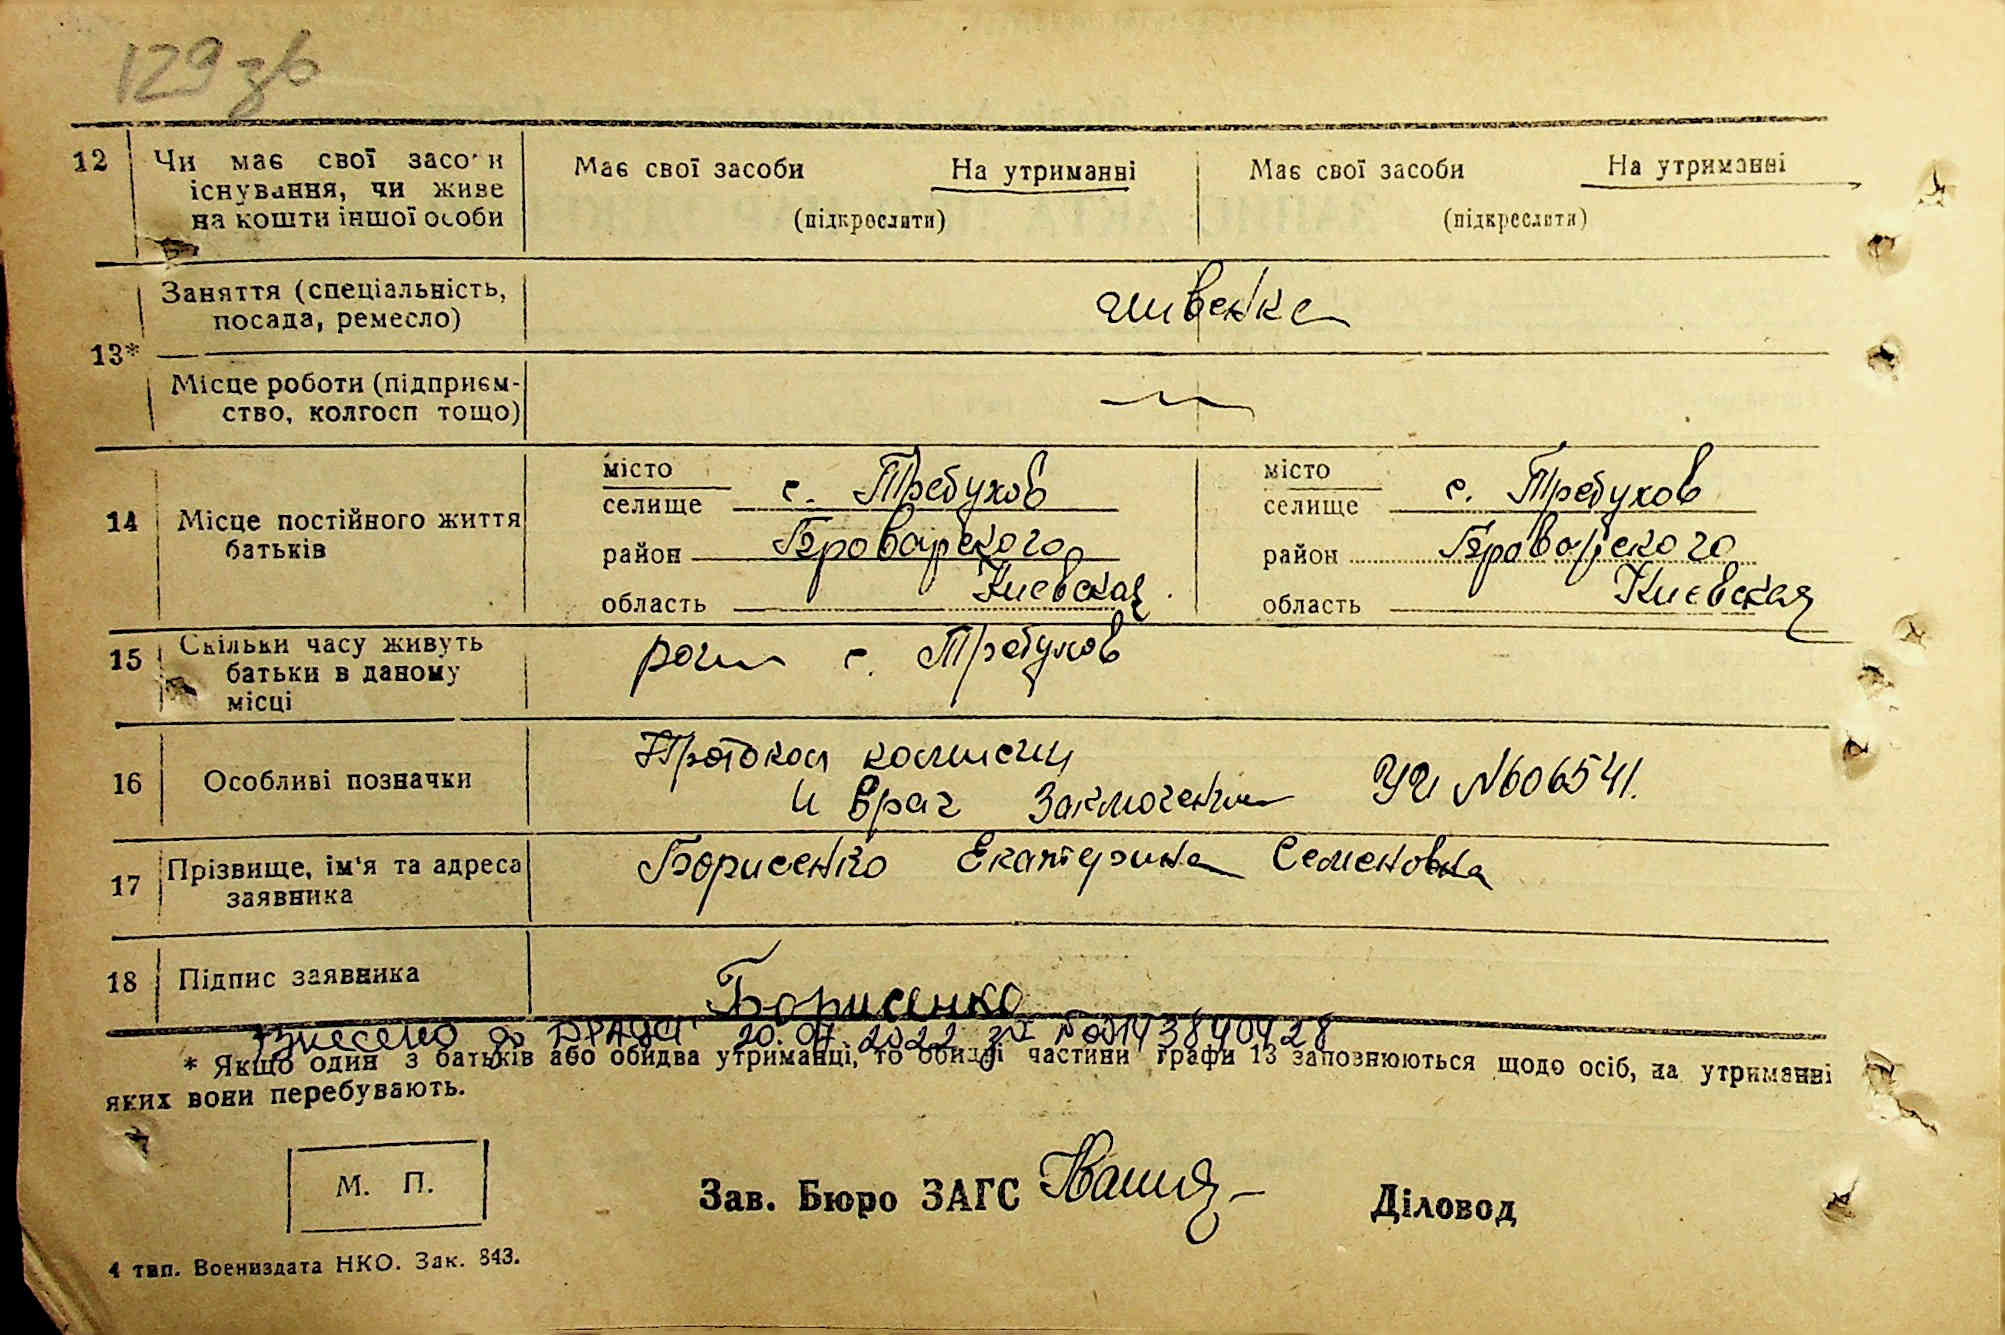 129 зв
12 Чи має свої засоби Має свої засоби На утриманні Має свої засоби На утриманні
існування, чи живе
на кошти іншої особи (підкреслити) (підкреслити)
Заняття (спеціальність, швенка
посада, ремесло)
13*
Місце роботи (підприєм-
ство, колгосп тощо)
місто місто
селище с. Требухов селище с. Требухов
14 Місце постійного життя
батьків
район Броварского район Броварского
область Киевская область Киевская
15 Скільки часу живуть с. Требухов
батьки в даному
місці
Протокол комисии
16 Особливі позначки и врач заключения №606541.
17 Прізвище, ім'я та адреса Борисенко Екатерина Семеновна
заявника
18 Підпис заявника Борисенко
Внесено до ДРАЦСГ 20.07.2022
* Якщо один з батьків або обидва утриманці, то обидві частини графи 13 заповнюються щодо осіб, на утриманні
яких вони перебувають.
М. П.
Зав. Бюро ЗАГС Діловод
4 тип. Воениздата НКО. Зак. 843.